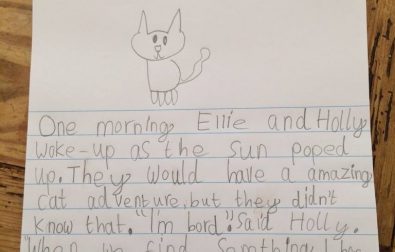 One morning Ellie and Holly
woke-up as the sun poped
up. They would have a amazing
cat adventure, but they didn't
know that. "I'm bord". Said Holly.
"When we find somthing